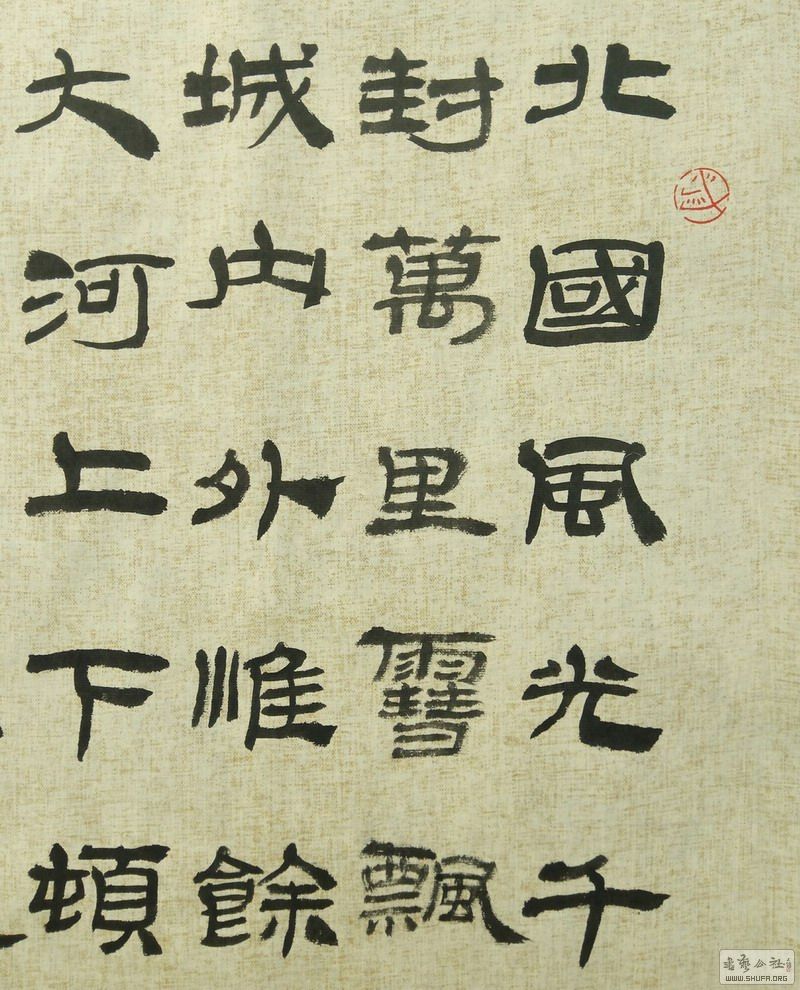 北國風光千
封萬里雪飄
城内外惟餘
大河上下頓
WWW.SHUFA.ORG